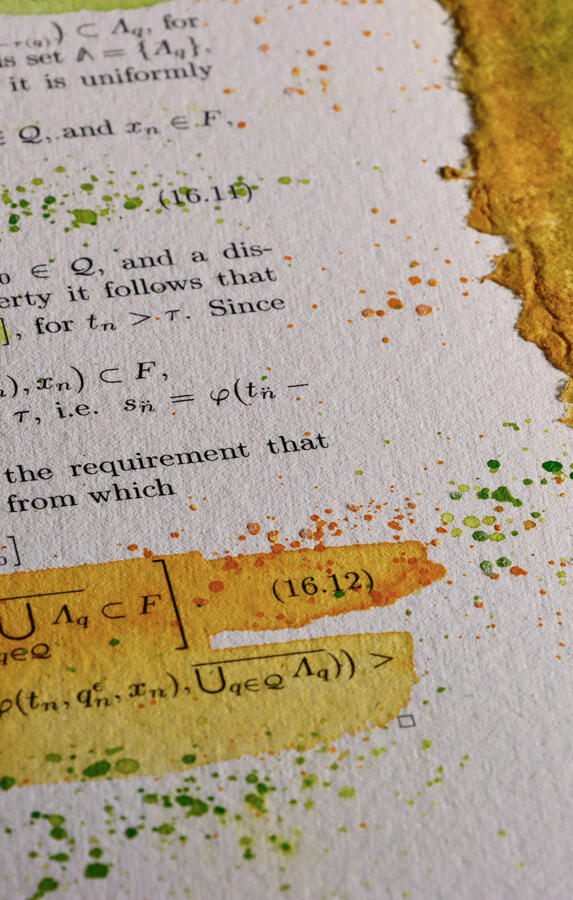 ) ⊂ Λ_q, for
is set 𝔸 = {Λ_q},
it is uniformly
∈ Q, and x_n ∈ F,
(16.11)
0 ∈ Q, and a dis-
erty it follows that
], for t_n > τ. Since
), x_n) ⊂ F,
τ, i.e. s_n̈ = φ(t_n̈ −
the requirement that
from which
]
⋃_{q∈Q} Λ_q ⊂ F] (16.12)
φ(t_n, q_n^ε, x_n), ⋃_{q∈Q} Λ_q)) >
□